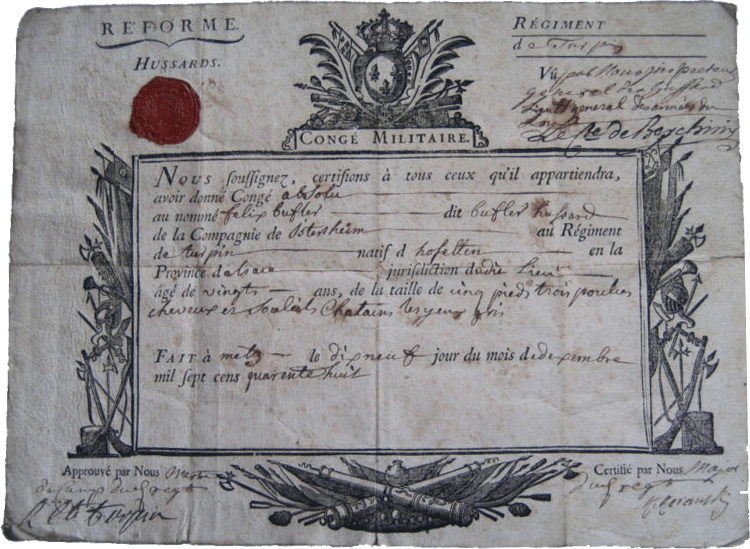 REFORME.
HUSSARDS.
RÉGIMENT
de Turpin
Vû par Nous inspecteur
general des
Lieutt general des armées du
Roy
Le Cte de Berchiny
CONGÉ MILITAIRE.
Nous ſouſſignez, certifions à tous ceux qu'il appartiendra,
avoir donné Congé absolu
au nommé felix bufler dit bufler hussard
de la Compagnie de Ostersheim au Régiment
de turpin natif d hofelten en la
Province dalsace jurisdiction dudit Lieu
âgé de vingts ans, de la taille de cinq pieds trois pouces
cheveux et Chatains les yeux gris
FAIT à metz le dixneuf jour du mois de dexembre
mil ſept cens quarente huit
Approuvé par Nous Mestre
de camp dud regt
Cte de Turpin
Certifié par Nous, Major
dud regt